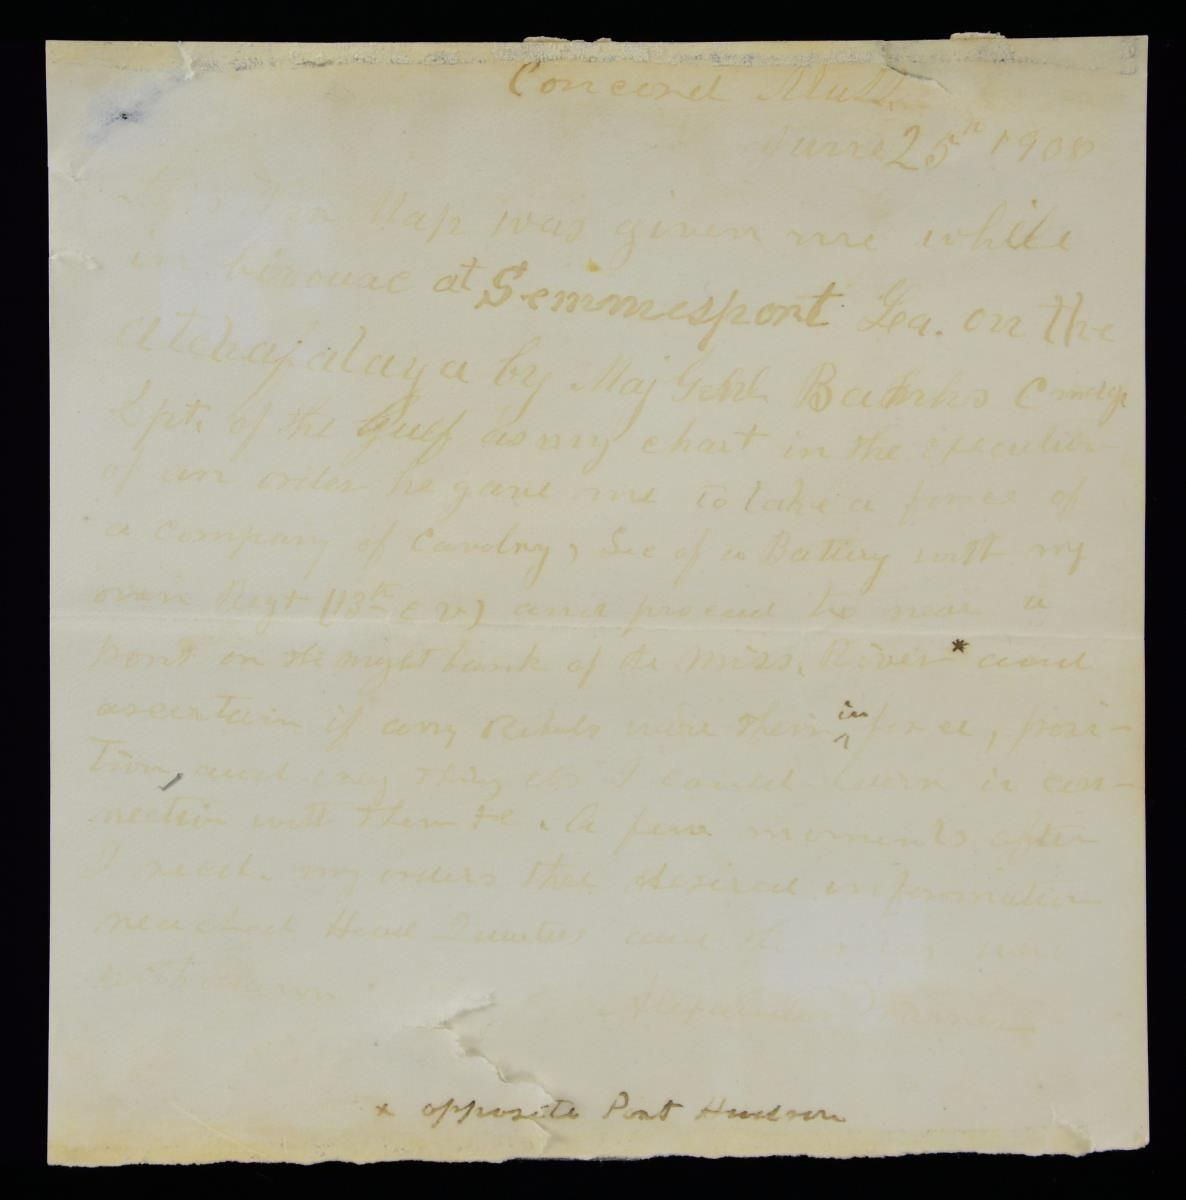 Concord Mass.
June 25th 1908
Map was given me while
in bivouac at Semmesport La. on the
Atchafalaya by Maj Genl Banks Cmdg
Dpt. of the Gulf as my chart in the execution
of an order he gave me to take a force of
a company of Cavalry, Sec of a Battery with my
own Regt (13th C V) and proceed to near a
point on the right bank of the Miss. River * and
ascertain if any Rebels were there in force, posi-
tion, and every thing else I could learn in con-
nection with them &c. A few moments after
I recd. my orders the desired information
reached Head Quarters and the were
withdrawn
Alexander Warner
x opposite Port Hudson